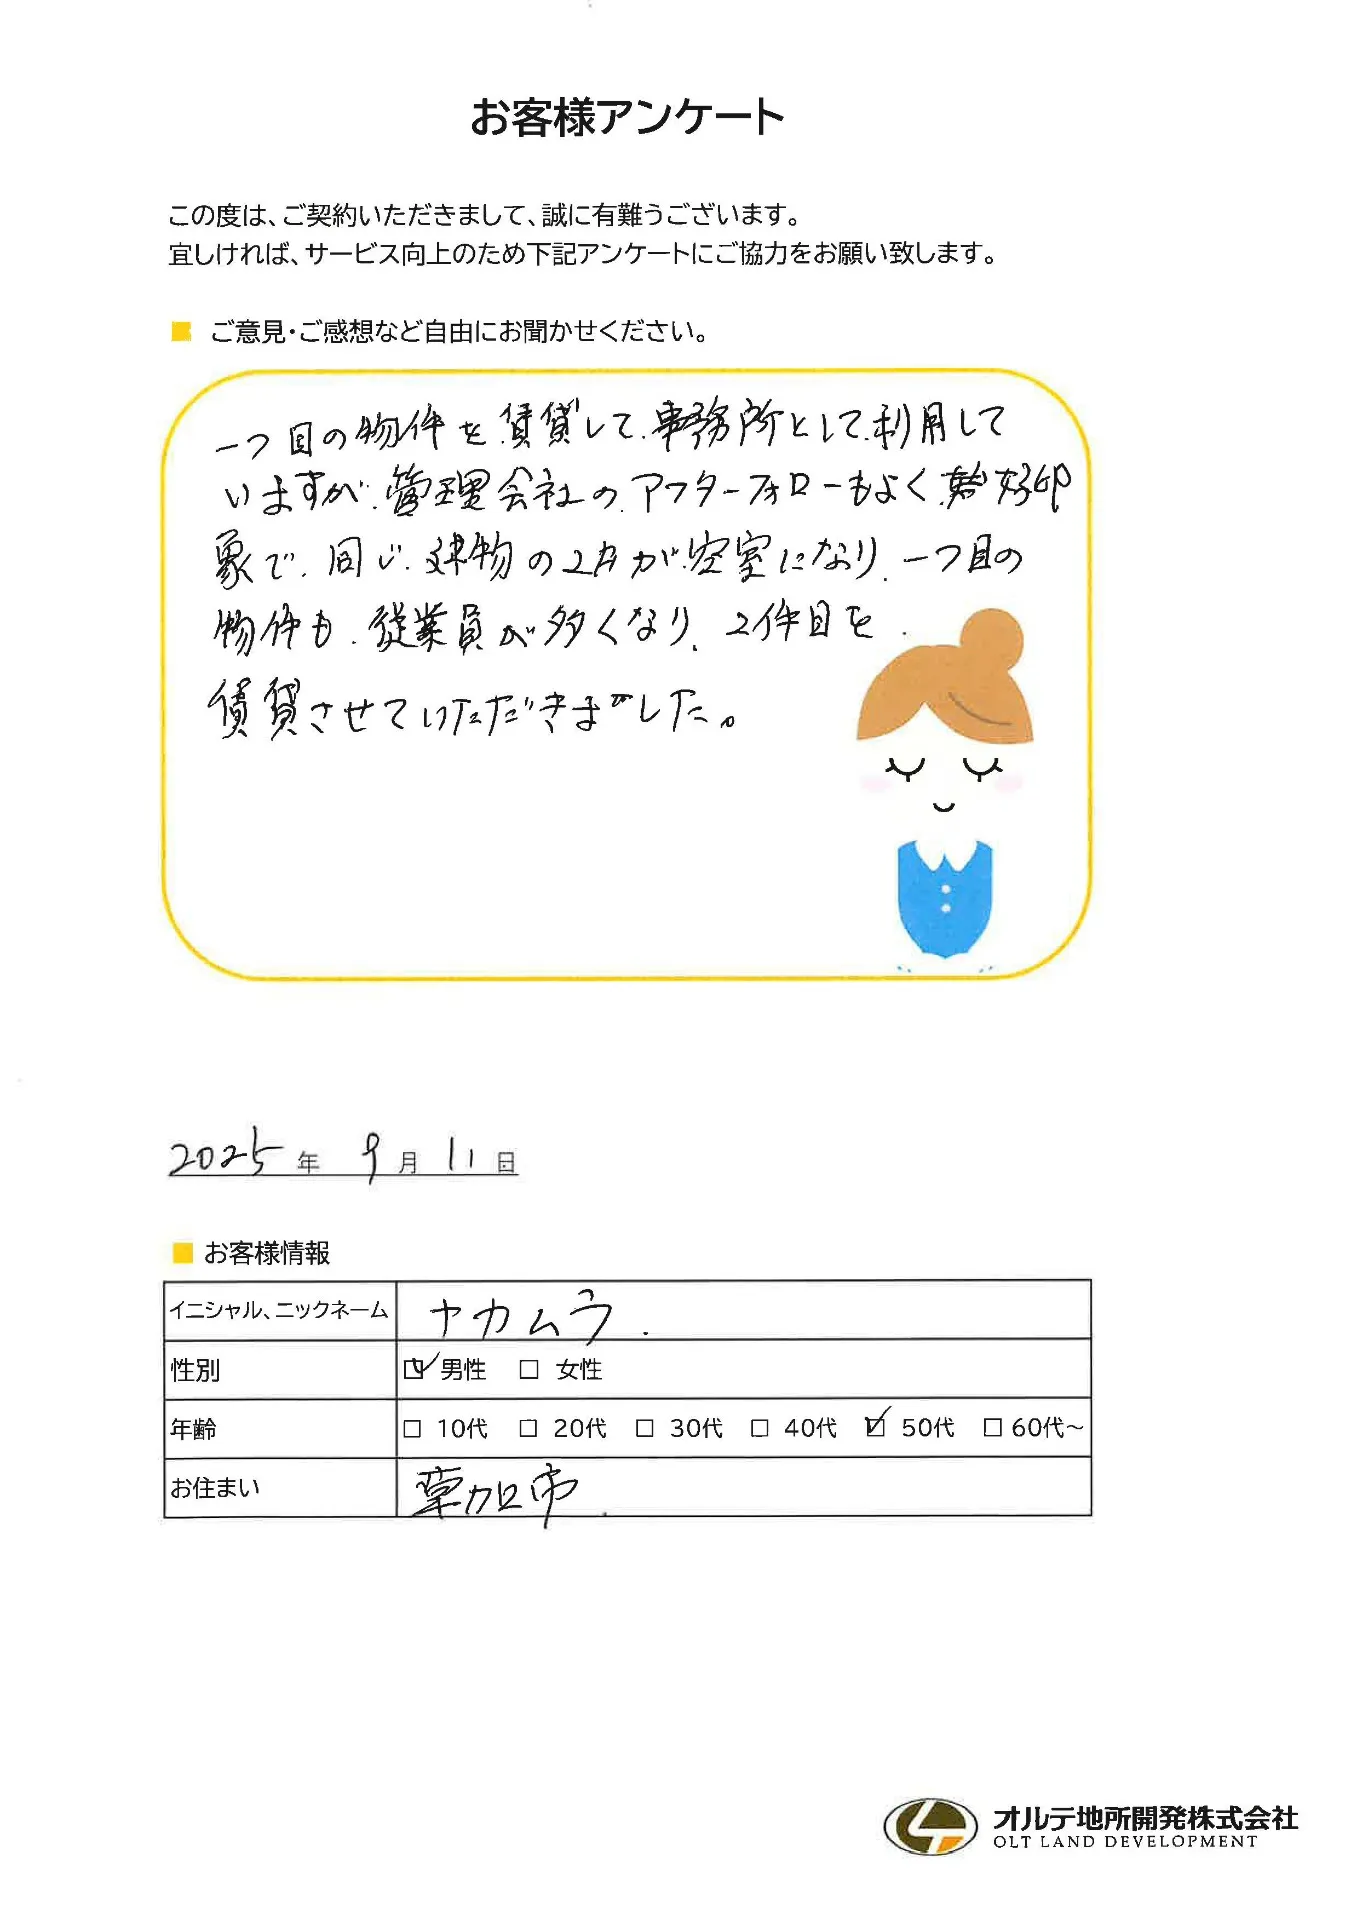 お客様アンケート
この度は、ご契約いただきまして、誠に有難うございます。
宜しければ、サービス向上のため下記アンケートにご協力をお願い致します。
■ ご意見・ご感想など自由にお聞かせください。
一つ目の物件を賃貸して、事務所として利用して
いますが、管理会社のアフターフォローもよく、好印
象で、同じ建物の2Fが空室になり、一つ目の
物件も、従業員が多くなり、2件目を
賃貸させていただきました。
2025年 9月 11日
■ お客様情報
イニシャル、ニックネーム ナカムラ.
性別 ☑ 男性 □ 女性
年齢 □ 10代 □ 20代 □ 30代 □ 40代 ☑ 50代 □ 60代～
お住まい 草加市.
オルテ地所開発株式会社
OLT LAND DEVELOPMENT